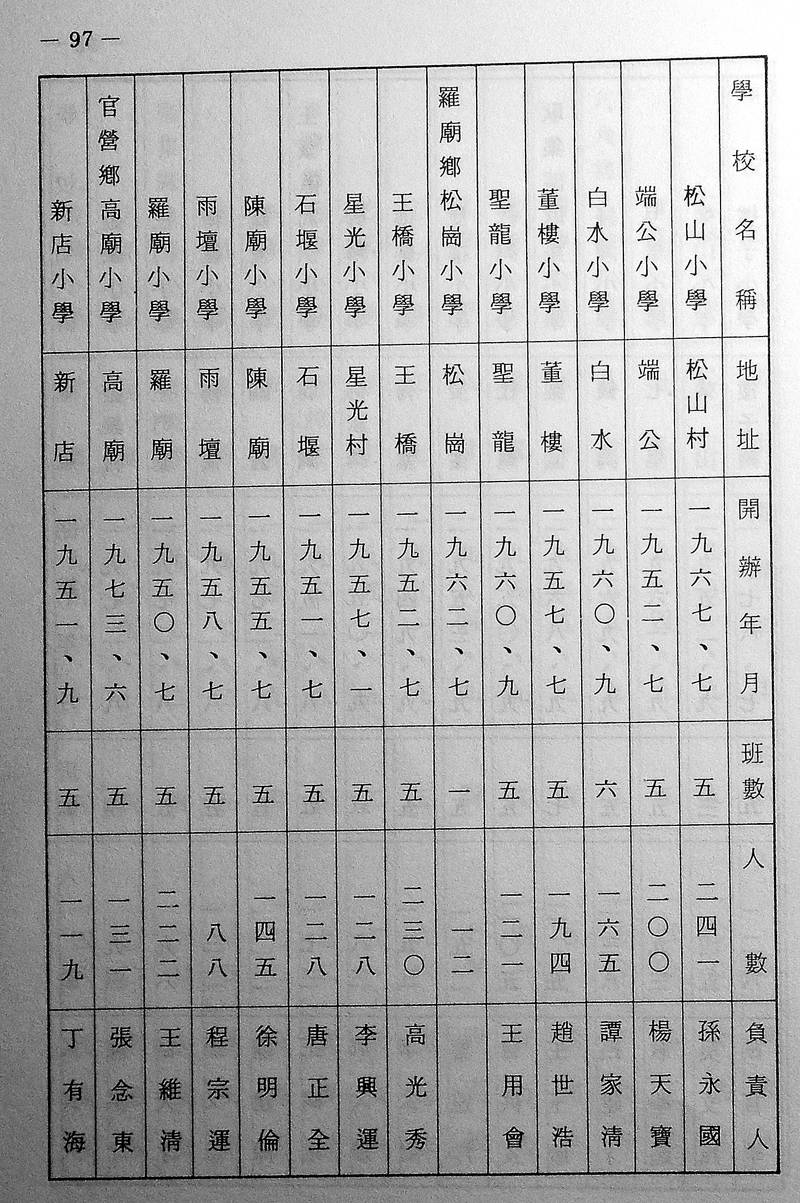 — 97 —
學校名稱 地址 開辦年月 班數 人數 負責人
松山小學 松山村 一九六七、七 五 二四一 孫永國
端公小學 端公 一九五二、七 五 二〇〇 楊天寶
白水小學 白水 一九六〇、九 六 一六五 譚家清
董樓小學 董樓 一九五七、七 五 一九四 趙世浩
聖龍小學 聖龍 一九六〇、九 五 一二一 王用會
羅廟鄉松崗小學 松崗 一九六二、七 一 一二
王橋小學 王橋 一九五二、七 五 二三〇 高光秀
星光小學 星光村 一九五七、一 五 一二八 李興運
石堰小學 石堰 一九五一、七 五 一二八 唐正全
陳廟小學 陳廟 一九五五、七 五 一四五 徐明倫
雨壇小學 雨壇 一九五八、七 五 八八 程宗運
羅廟小學 羅廟 一九五〇、七 五 二二二 王維清
官營鄉高廟小學 高廟 一九七三、六 五 一三一 張念東
新店小學 新店 一九五一、九 五 一一九 丁有海